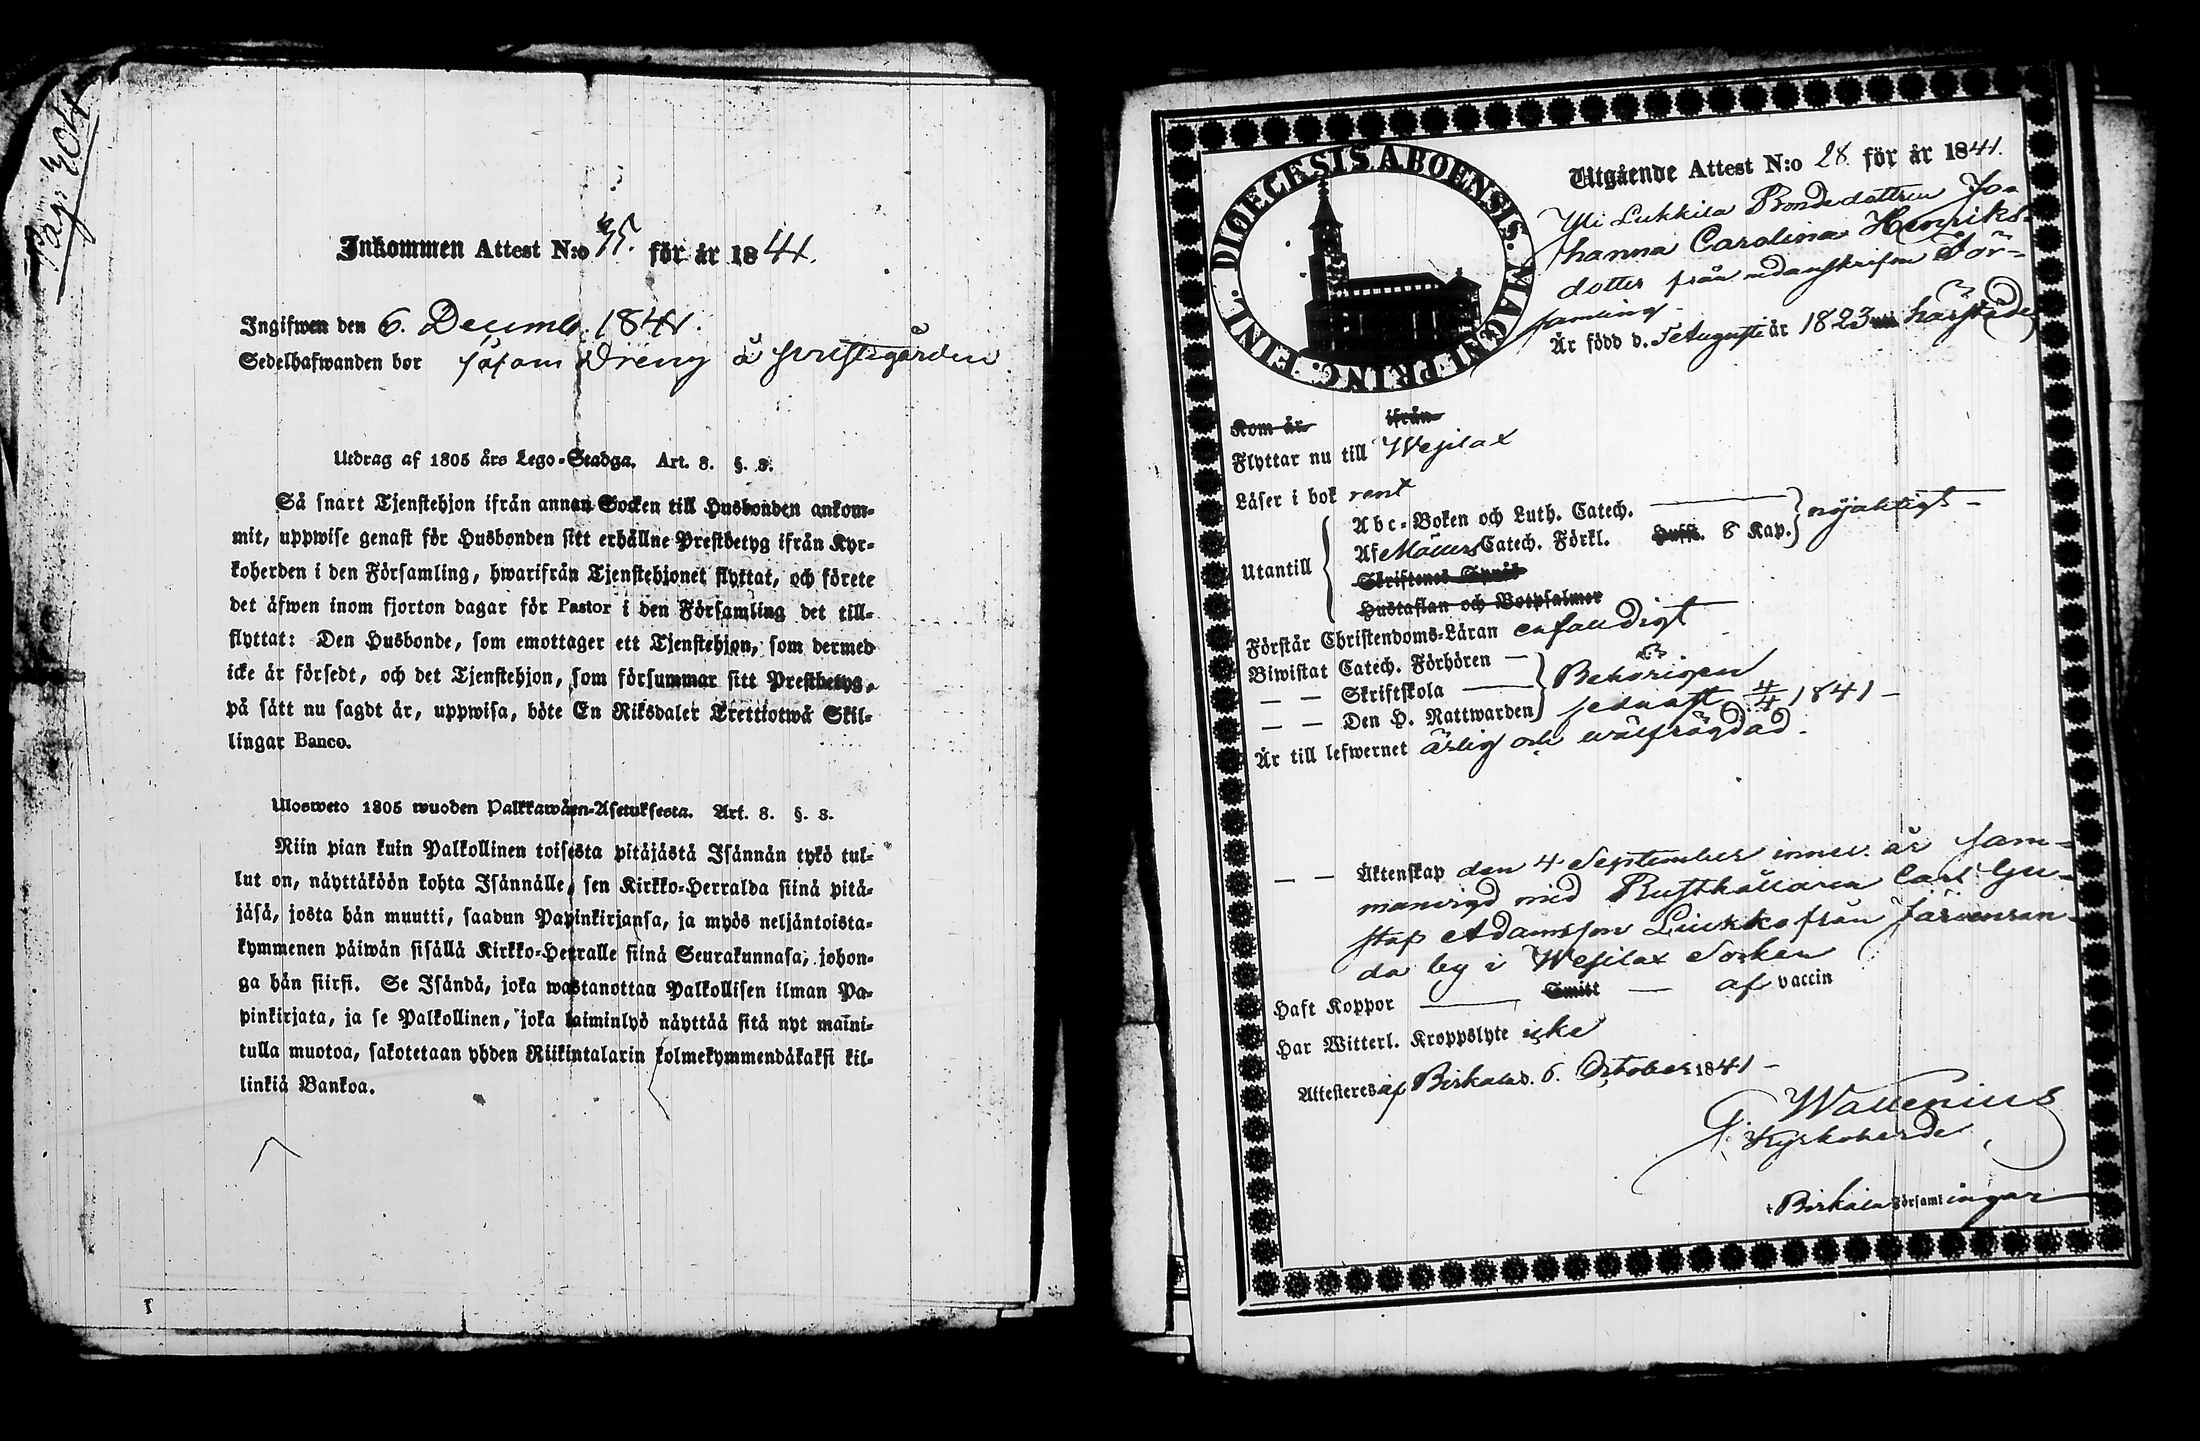 Pag. 304
Inkommen Attest N:o 35. för år 1841.
Ingifwen den 6. Decemb. 1841.
Sedelhafwanden bor såsom Dräng å prestegården
Utdrag af 1805 års Lego-Stadga. Art. 8. §. 3.
Så snart Tjenstehjon ifrån annan Socken till Husbonden ankom-
mit, uppwise genast för Husbonden sitt erhållne Prestbetyg ifrån Kyr-
koherden i den Församling, hwarifrån Tjenstehjonet flyttat, och förete
det äfwen inom fjorton dagar för Pastor i den Församling det till-
flyttat: Den Husbonde, som emottager ett Tjenstehjon, som dermed
icke är försedt, och det Tjenstehjon, som försummar sitt Prestbetyg,
på sätt nu sagdt är, uppwisa, böte En Riksdaler Trettiotwå Skil-
lingar Banco.
Ulosweto 1805 wuoden Palkkawäen-Asetuksesta. Art. 8. §. 3.
Niin pian kuin Palkollinen toisesta pitäjästä Isännän tykö tul-
lut on, näyttäköön kohta Isännälle, sen Kirkko-Herralda siinä pitä-
jäsä, josta hän muutti, saadun Papinkirjansa, ja myös neljäntoista-
kymmenen päiwän sisällä Kirkko-Herralle siinä Seurakunnasa, johon-
ga hän siirsi. Se Isändä, joka wastanottaa Palkollisen ilman Pa-
pinkirjata, ja se Palkollinen, joka laiminlyö näyttää sitä nyt maini-
tulla muotoa, sakotetaan yhden Riikintalarin kolmekymmendäkaksi kil-
linkiä Bankoa.
DIOECESIS ABOENSIS. MAGNI PRINC. FINL.
Utgående Attest N:o 28. för år 1841.
Yli Lukkila Bondedottren Jo-
hanna Carolina Henriks-
dotter från nedanskrifne För-
samling.
Är född d. 5 Augusti år 1823 härstädes
Kom år ifrån
Flyttar nu till Wesilax
Läser i bok rent
Abc-Boken och Luth. Catech.
Utantill Af Möllers Catech. Förkl. Hufst. 8 Kap. nöjaktigt
Skriftenes Språk
Hustaflan och Botpsalmer
Förstår Christendoms-Läran enfaldigt
Biwistat Catech. Förhören Behörigen
— — Skriftskola
— — Den H. Nattwarden sednast 4/4 1841
Är till lefwernet ärlig och wälfrägdad.
— — Äktenskap den 4 September innev. år sam-
manvigd med Rusthållaren Carl Gu-
staf Adamsson Liukko från Järvenran-
da by i Wesilax Socken
Haft Koppor Smitt af vaccin
Har Witterl. Kroppslyte icke
Attesteres af Birkala d. 6. October 1841
G. Wallenius
Kyrkoherde
i Birkala Församlingar